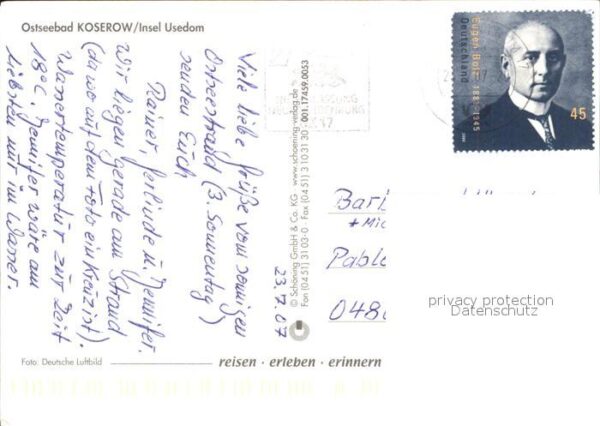 Ostseebad KOSEROW/Insel Usedom
23.7.07
Viele liebe Grüße vom sonnigen
Ostseestrand (3. Sonnentag)
senden Euch
Rainer, Gerlinde u. Jennifer.
Wir liegen gerade am Strand
(da wo auf dem Foto ein Kreuz ist).
Wassertemperatur zur Zeit
18°C. Jennifer wäre am
liebsten nur im Wasser.
© Schöning GmbH & Co. KG · www.schoening-verlag.de · 001.17459.0053
Fon (04 51) 31 03-0 · Fax (04 51) 3 10 31 30
Eugen Bolz 1881-1945
Deutschland
45
Bar
+ Mic
Pablo
048
privacy protection
Datenschutz
Foto: Deutsche Luftbild
reisen · erleben · erinnern